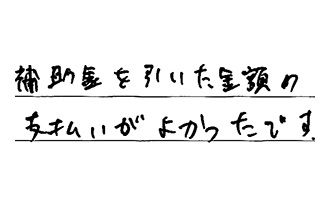 補助金を引いた金額の
支払いがよかったです